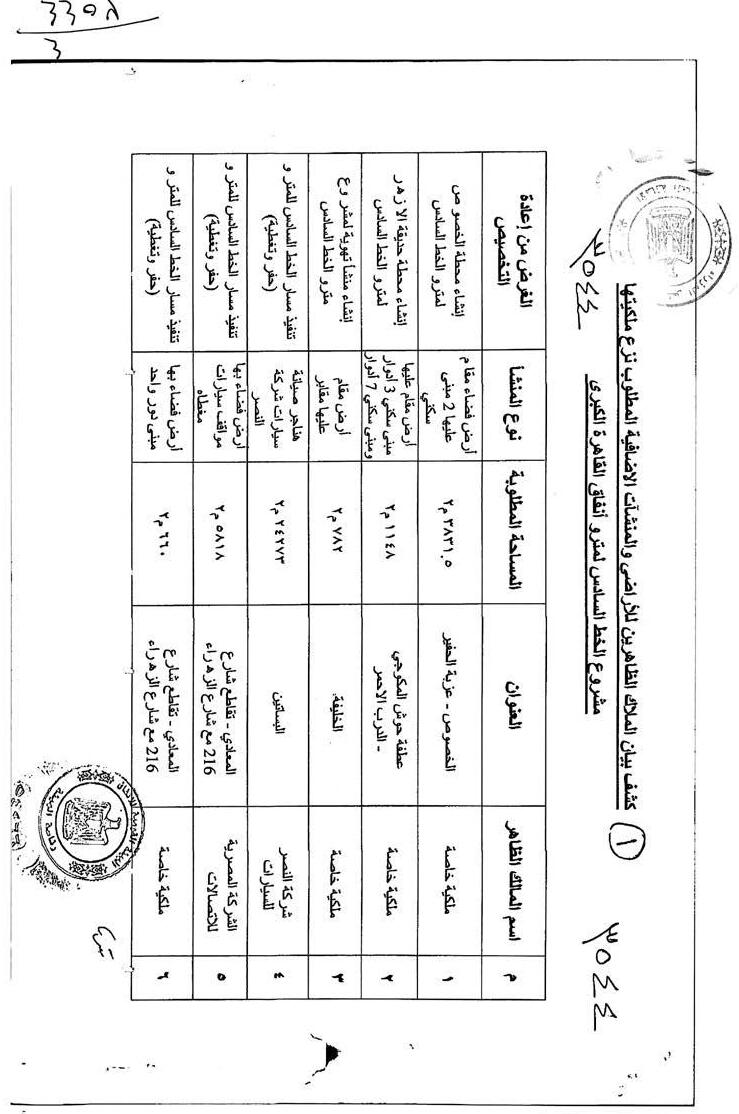 ٣٥٤٤
٣٥٤٤
١
كشف بيان الملاك الظاهرين للأراضي والمنشآت الاضافية المطلوب نزع ملكيتها
مشروع الخط السادس لمترو أنفاق القاهرة الكبرى
م اسم المالك الظاهر العنوان المساحة المطلوبة نوع المنشأ الغرض من إعادة التخصيص
١ ملكية خاصة الخصوص - عزبة الحفير ٣٨٣١.٥ م٢ أرض فضاء مقام عليها 2 مبنى سكني إنشاء محطة الخصوص لمترو الخط السادس
٢ ملكية خاصة عطفة حوش المكوجي - الدرب الاحمر ١١٤٨ م٢ أرض مقام عليها مبنى سكني 3 أدوار ومبنى سكني 7 أدوار إنشاء محطة حديقة الازهر لمترو الخط السادس
٣ ملكية خاصة الخليفة ٧٨٢ م٢ أرض مقام عليها مقابر إنشاء منشأ تهوية لمشروع مترو الخط السادس
٤ شركة النصر للسيارات البساتين ٢٤٢٧٣ م٢ هناجر صيانة سيارات شركة النصر تنفيذ مسار الخط السادس للمترو (حفر وتغطية)
٥ الشركة المصرية للاتصالات المعادي - تقاطع شارع 216 مع شارع الزهراء ٥٨١٨ م٢ أرض فضاء بها مواقف سيارات مغطاه تنفيذ مسار الخط السادس للمترو (حفر وتغطية)
٦ ملكية خاصة المعادي - تقاطع شارع 216 مع شارع الزهراء ٦٦٠ م٢ أرض فضاء بها مبنى دور واحد تنفيذ مسار الخط السادس للمترو (حفر وتغطية)